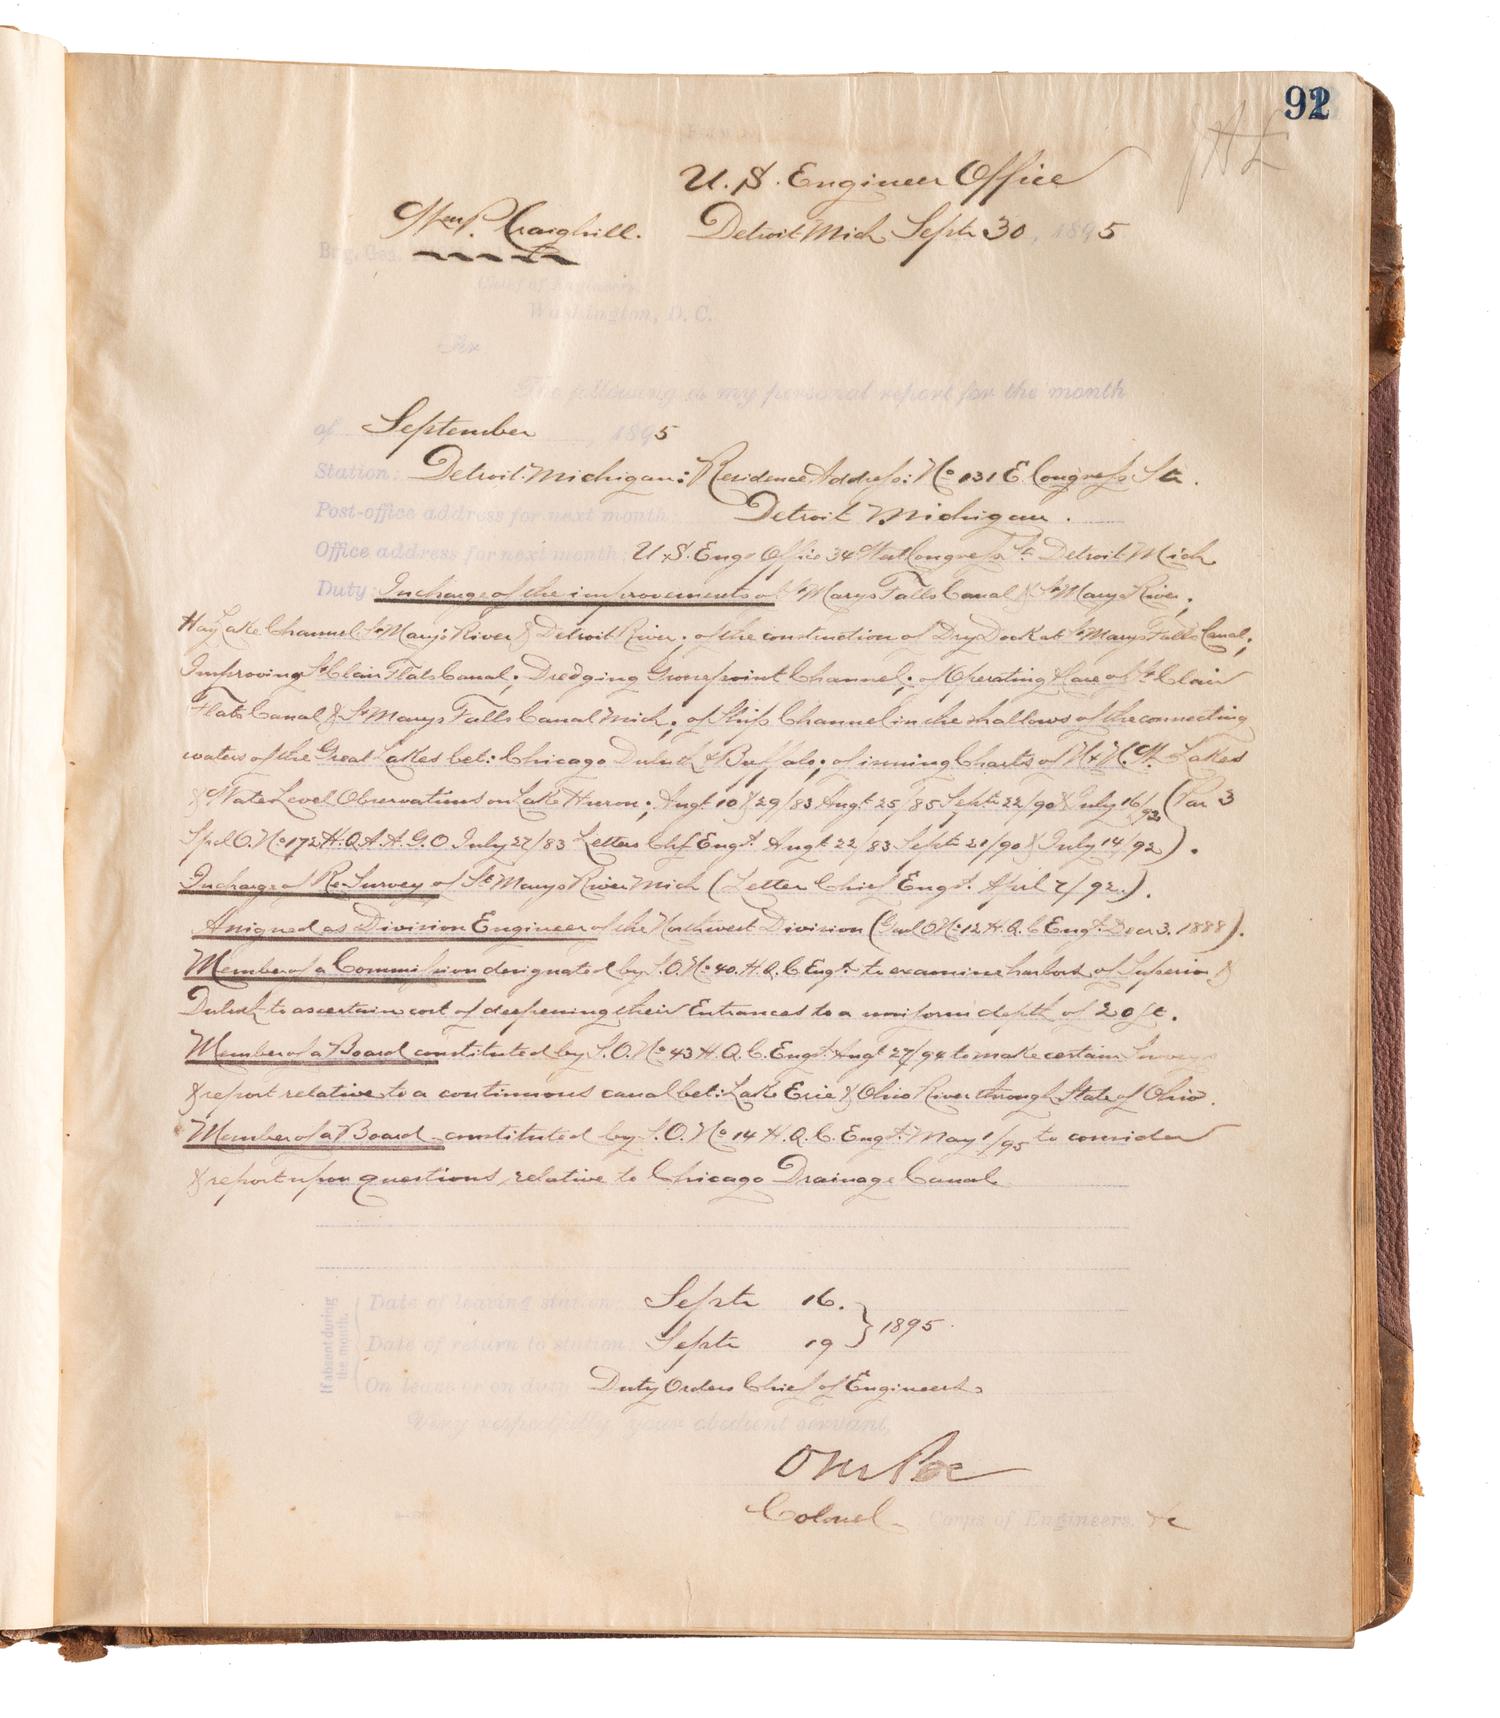 92
U. S. Engineer Office
Wm P. Craighill. Detroit Mich Septr 30, 1895
Brig. Gen.
Chief of Engineers
Washington, D. C.
Sir
The following is my personal report for the month
of September, 1895
Station: Detroit Michigan: Residence Address: No 131 E Congress St.
Post-office address for next month: Detroit Michigan.
Office address for next month: U. S. Engr Office 34 West Congress St. Detroit Mich
Duty: In charge of the improvements of St Marys Falls Canal & St Marys River;
Hay Lake Channel St Mary's River & Detroit River; of the construction of Dry Dock at St Marys Falls Canal;
Improving St Clair Flats Canal; Dredging Grossepoint Channel; of Operating & Care of St Clair
Flats Canal & St Marys Falls Canal Mich; of Ship Channel in the shallows of the connecting
waters of the Great Lakes bet: Chicago Duluth & Buffalo; of issuing Charts of N & N. W. Lakes
& Water Level Observations on Lake Huron; Augt 10 & 29/83 Augt 25/85 Septr 22/90 & July 16/92 (Par 3
Spcl O. No 172 H. Q. A. A. G. O July 27/83 Letters Chf Engrs. Augt 22/83 Septr 21/90 & July 14/92).
In charge of Re-Survey of St Marys River Mich (Letter Chief Engrs. April 7/92.).
Assigned as Division Engineer of the Northwest Division (Genl O No 12 H. Q. C Engrs Decr 3. 1888).
Member of a Commission designated by S. O. No 40. H. Q. C Engrs. to examine harbors of Superior &
Duluth to ascertain cost of deepening their Entrances to a uniform depth of 20 ft.
Member of a Board constituted by S. O. No 43 H. Q. C. Engrs. Augt 27/94 to make certain Surveys
& report relative to a continuous canal bet: Lake Erie & Ohio River through State of Ohio.
Member of a Board constituted by S. O. No 14 H. Q. C. Engrs. May 1/95 to consider
& report upon questions relative to Chicago Drainage Canal
If absent during the month.
Date of leaving station: Septr 16.
Date of return to station: Septr 19 } 1895.
On leave or on duty: Duty Orders Chief of Engineers
Very respectfully, your obedient servant,
O M Poe
Colonel Corps of Engineers. &c